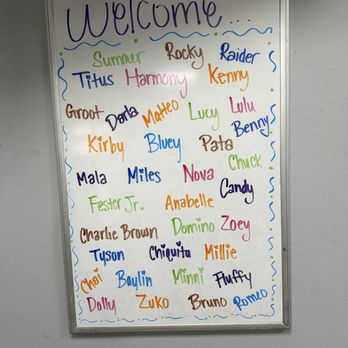 Welcome...
Summer Rocky Raider
Titus Harmony Kenny
Groot Darla Matteo Lucy Lulu
Kirby Bluey Pata Benny
Chuck
Mala Miles Nova Candy
Fester Jr. Anabelle
Charlie Brown Domino Zoey
Tyson Chiquita Millie
Chai Baylin Minni Fluffy
Dolly Zuko Bruno Romeo